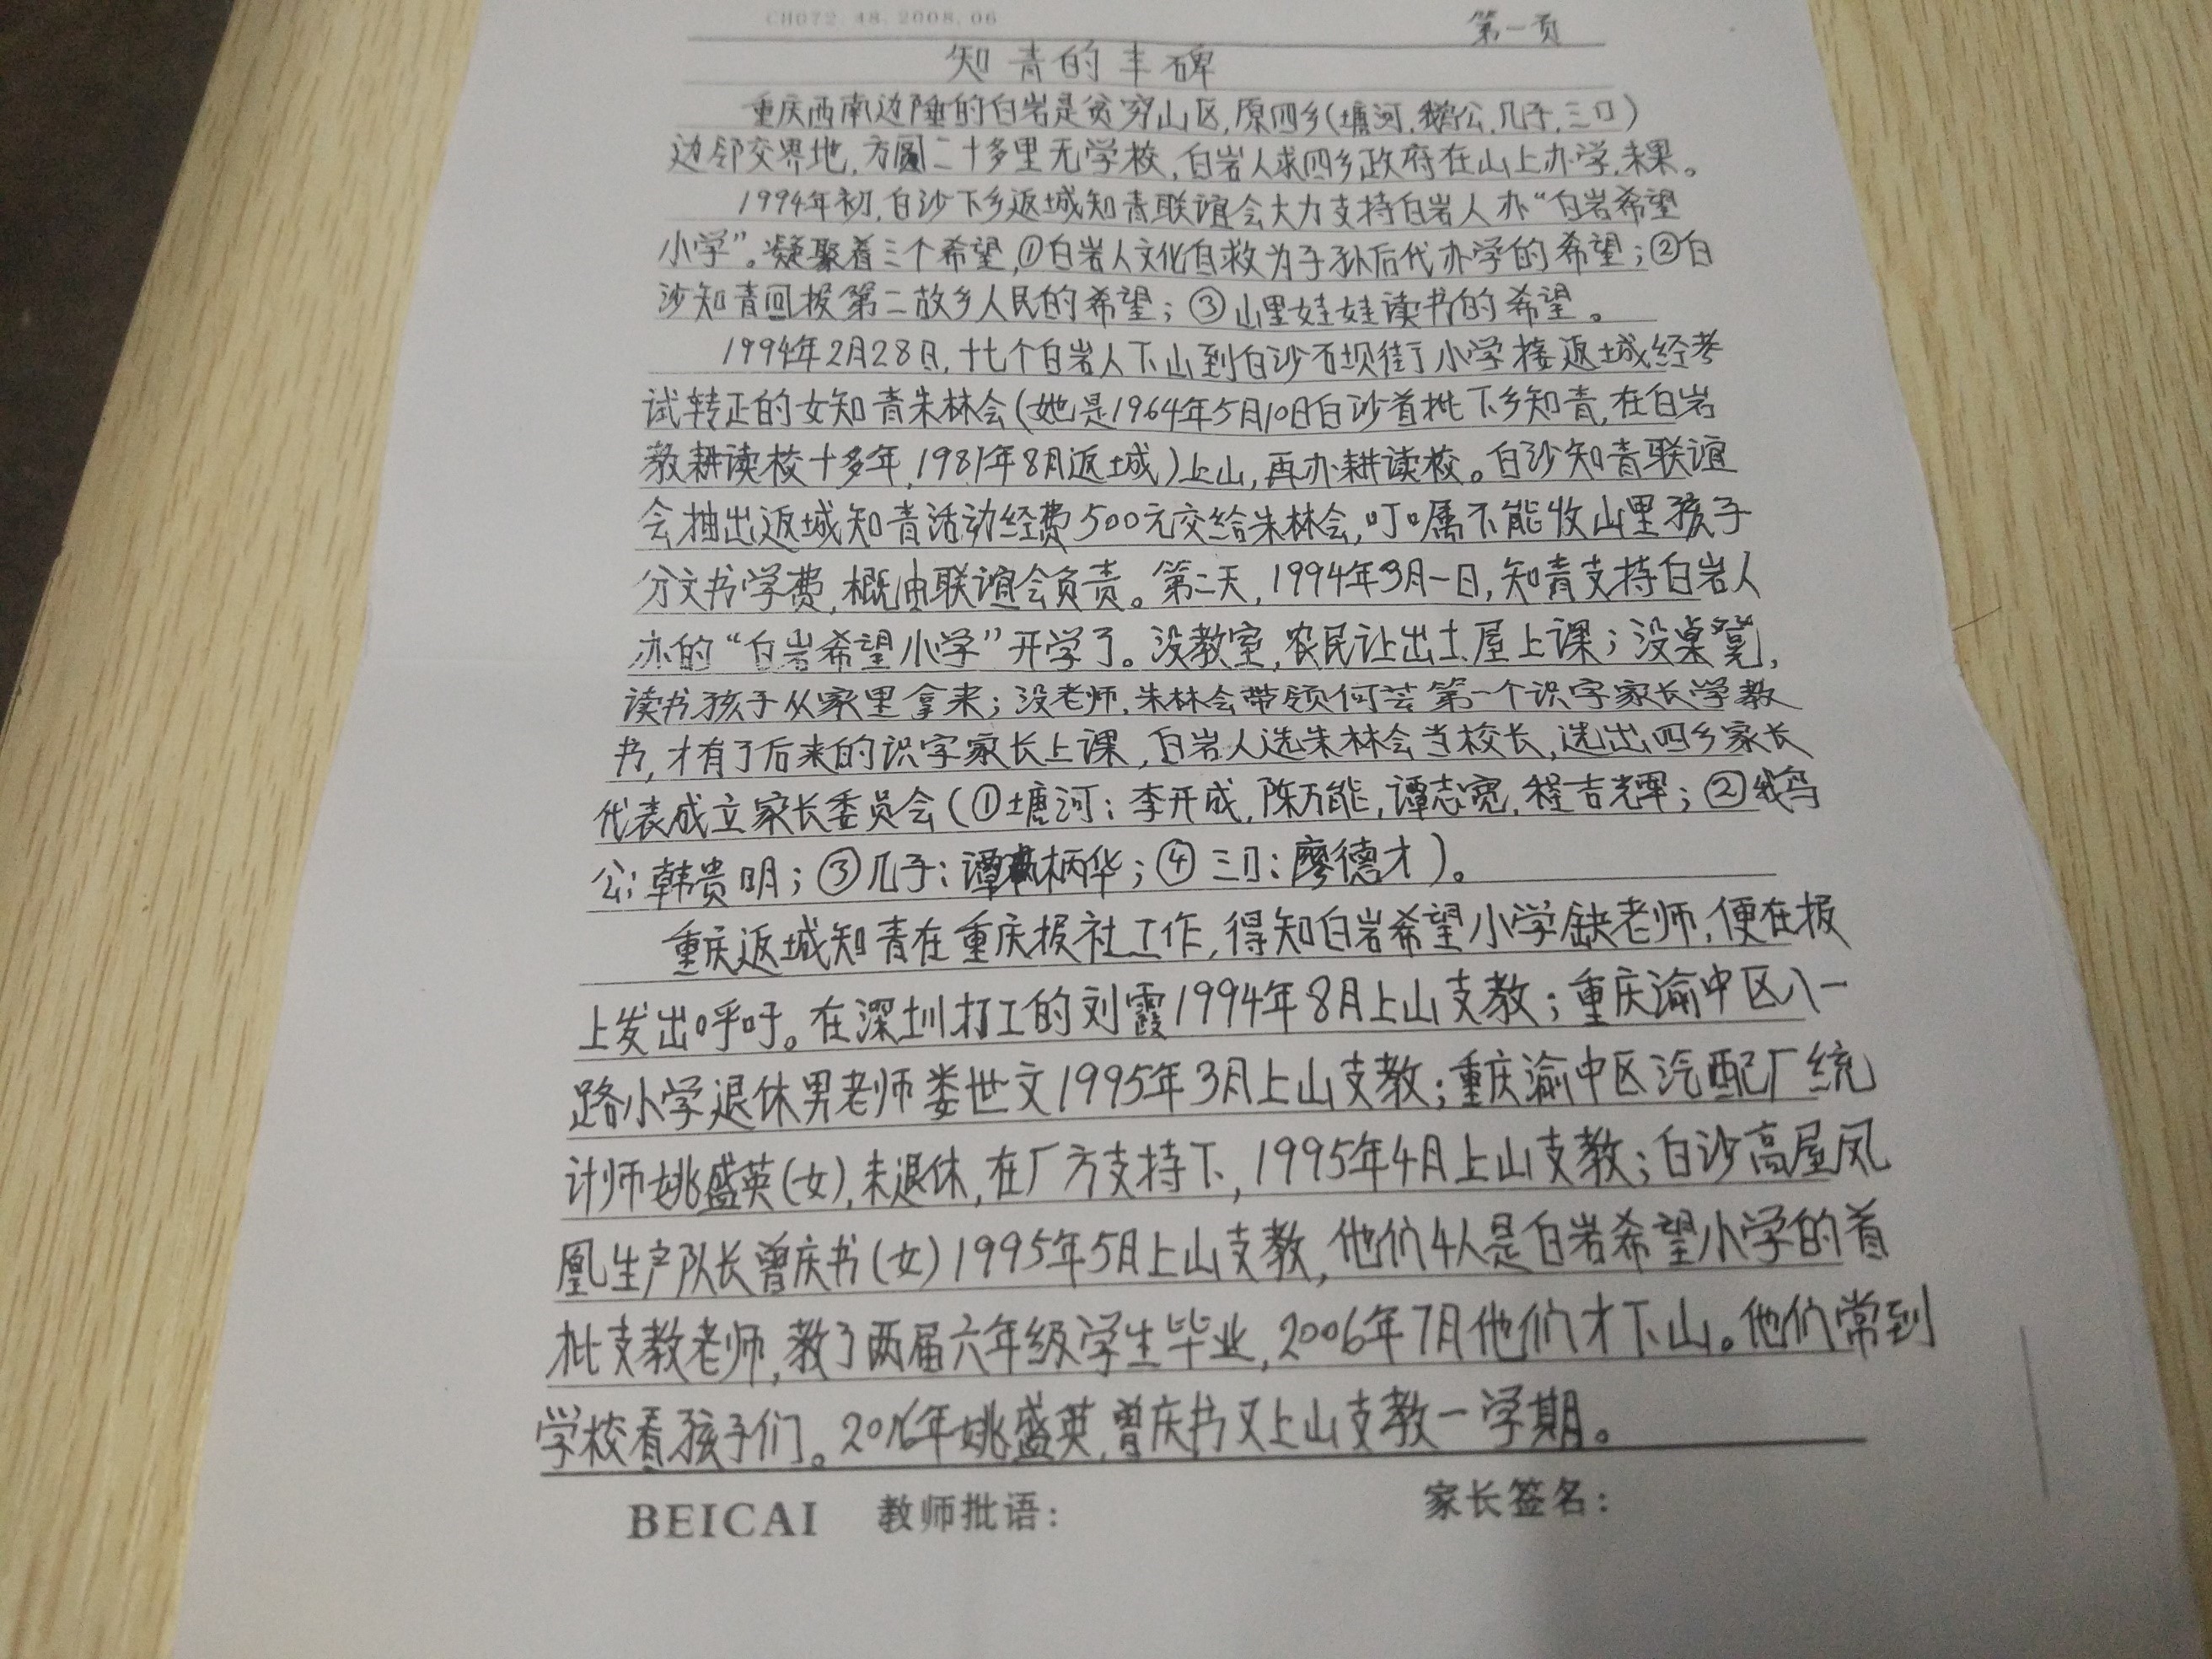 CH072.48.2008.06
第一页
知青的丰碑
重庆西南边陲的白岩是贫穷山区,原四乡(塘河,鹅公,几子,三口)
边邻交界地,方圆二十多里无学校,白岩人求四乡政府在山上办学,未果。
1994年初,白沙下乡返城知青联谊会大力支持白岩人办“白岩希望
小学”。凝聚着三个希望,①白岩人文化自救为子孙后代办学的希望;②白
沙知青回报第二故乡人民的希望;③山里娃娃读书的希望。
1994年2月28日,十七个白岩人下山到白沙石坝街小学接返城经考
试转正的女知青朱林会(她是1964年5月10日白沙首批下乡知青,在白岩
教耕读校十多年,1981年8月返城)上山,再办耕读校。白沙知青联谊
会抽出返城知青活动经费500元交给朱林会,叮嘱不能收山里孩子
分文书学费,概由联谊会负责。第二天,1994年3月一日,知青支持白岩人
办的“白岩希望小学”开学了。没教室,农民让出土屋上课;没桌凳,
读书孩子从家里拿来;没老师,朱林会带领何芸第一个识字家长学教
书,才有了后来的识字家长上课,白岩人选朱林会当校长,选出四乡家长
代表成立家长委员会(①塘河:李开成,陈万能,谭志宽,程吉辉;②鹅
公:韩贵明;③几子:谭柄华;④三口:廖德才)。
重庆返城知青在重庆报社工作,得知白岩希望小学缺老师,便在报
上发出呼吁。在深圳打工的刘霞1994年8月上山支教;重庆渝中区八一
路小学退休男老师娄世文1995年3月上山支教;重庆渝中区汽配厂统
计师姚盛英(女),未退休,在厂方支持下,1995年4月上山支教;白沙高屋凤
凰生产队长曾庆书(女)1995年5月上山支教,他们4人是白岩希望小学的首
批支教老师,教了两届六年级学生毕业,2006年7月他们才下山。他们常到
学校看孩子们。2016年姚盛英,曾庆书又上山支教一学期。
BEICAI 教师批语: 家长签名: